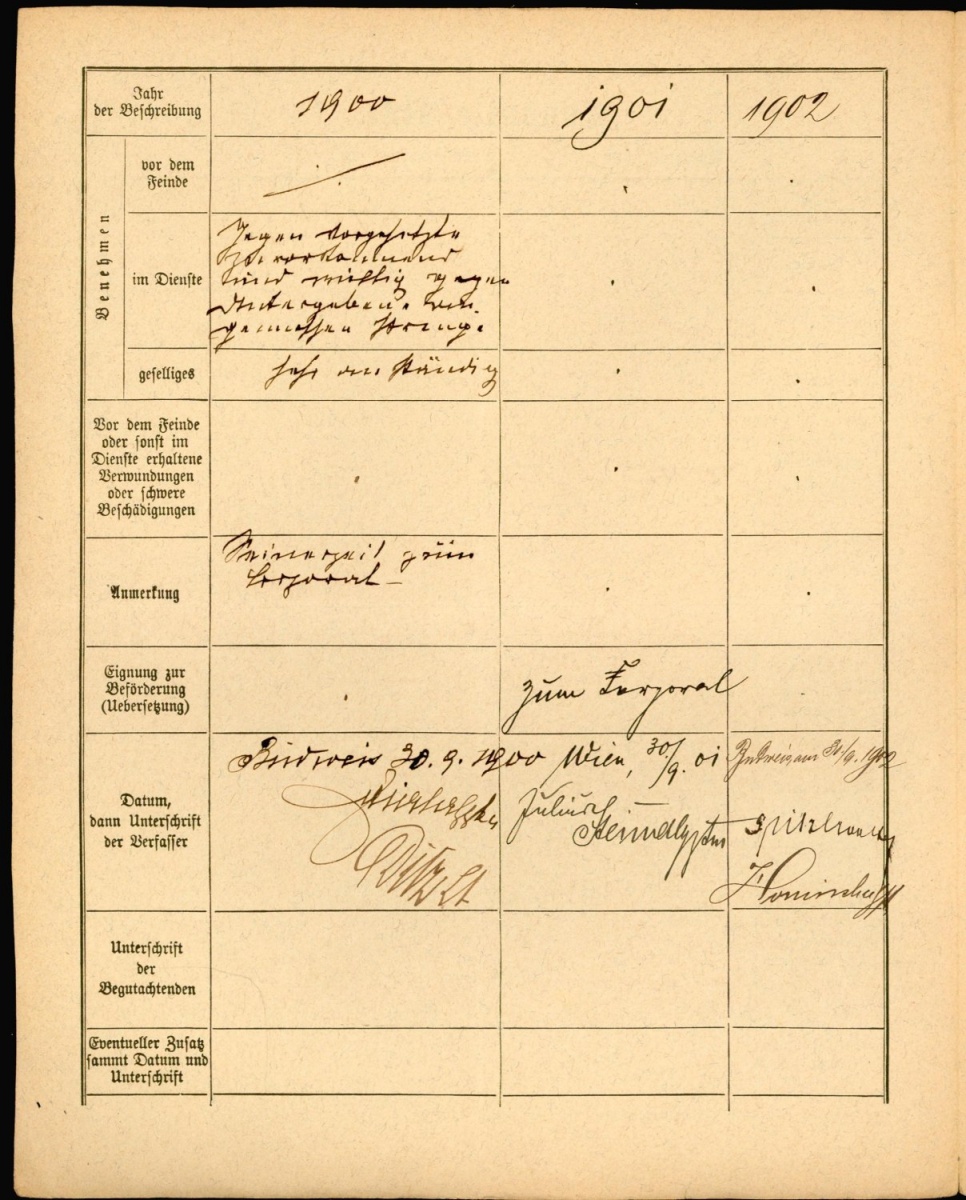 Jahr
der Beschreibung
1900
1901
1902
Benehmen
vor dem
Feinde
im Dienste
Gegen Vorgesetzte
zuvorkommend
und willig gegen
Untergebene an-
gemessen streng.
geselliges
sehr anständig
Vor dem Feinde
oder sonst im
Dienste erhaltene
Verwundungen
oder schwere
Beschädigungen
Anmerkung
Seinerzeit zum
Corporal
Eignung zur
Beförderung
(Uebersetzung)
zum Korporal
Datum,
dann Unterschrift
der Verfasser
Budweis 30. 9. 1900
Wien, 30/9. 01
Budweis am 30/9. 1902
Unterschrift
der
Begutachtenden
Eventueller Zusatz
sammt Datum und
Unterschrift